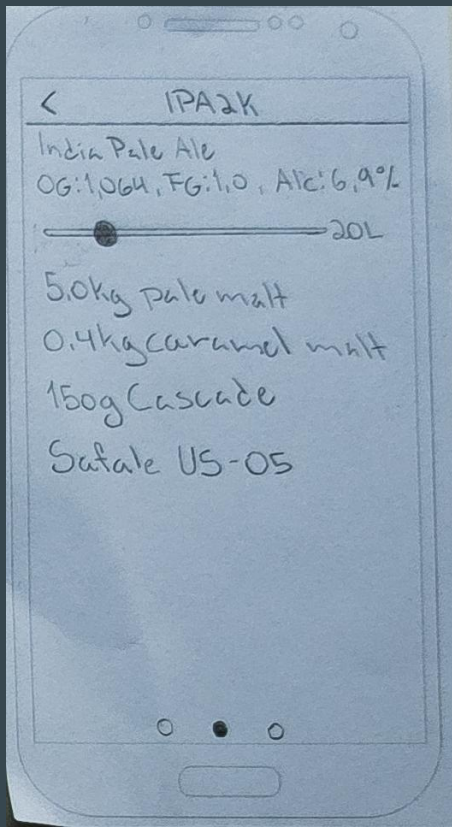 < IPA2K
India Pale Ale
OG:1,064, FG:1,0, Alc:6,9%
20L
5,0kg pale malt
0,4kg caramel malt
150g Cascade
Safale US-05